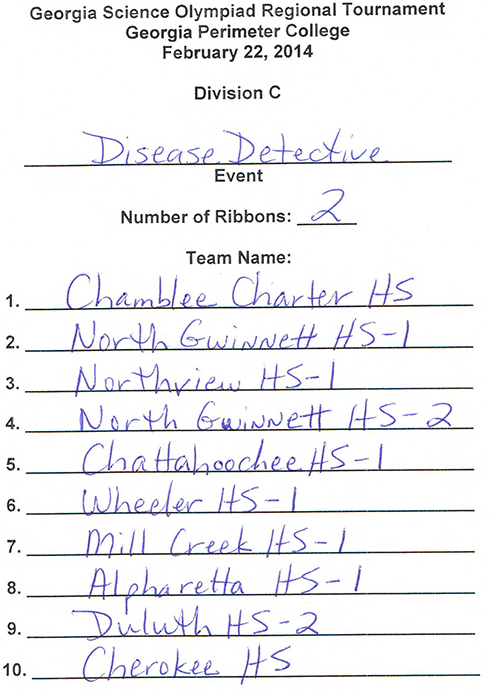 Georgia Science Olympiad Regional Tournament
Georgia Perimeter College
February 22, 2014
Division C
Disease Detective
Event
Number of Ribbons: 2
Team Name:
1. Chamblee Charter HS
2. North Gwinnett HS-1
3. Northview HS-1
4. North Gwinnett HS-2
5. Chattahoochee HS-1
6. Wheeler HS-1
7. Mill Creek HS-1
8. Alpharetta HS-1
9. Duluth HS-2
10. Cherokee HS